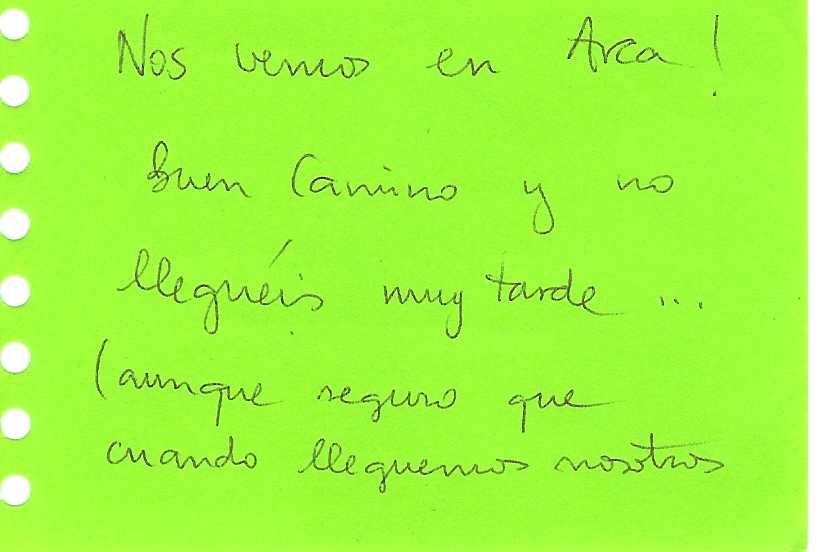 Nos vemos en Arca!
Buen Camino y no
lleguéis muy tarde ...
(aunque seguro que
cuando lleguemos nosotros